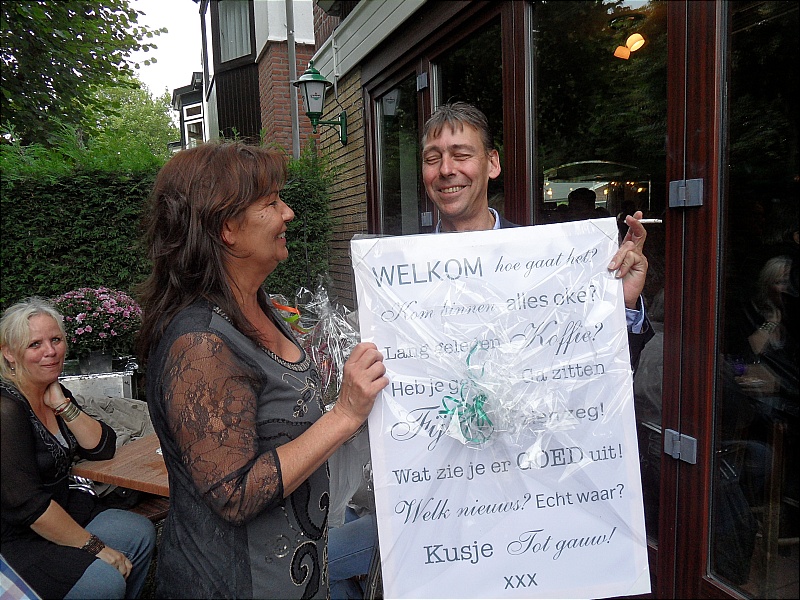 WELKOM hoe gaat het?
Kom binnen alles oké?
Lang geleden Koffie?
Heb je Ga zitten
zeg!
Wat zie je er GOED uit!
Welk nieuws? Echt waar?
Kusje Tot gauw!
XXX